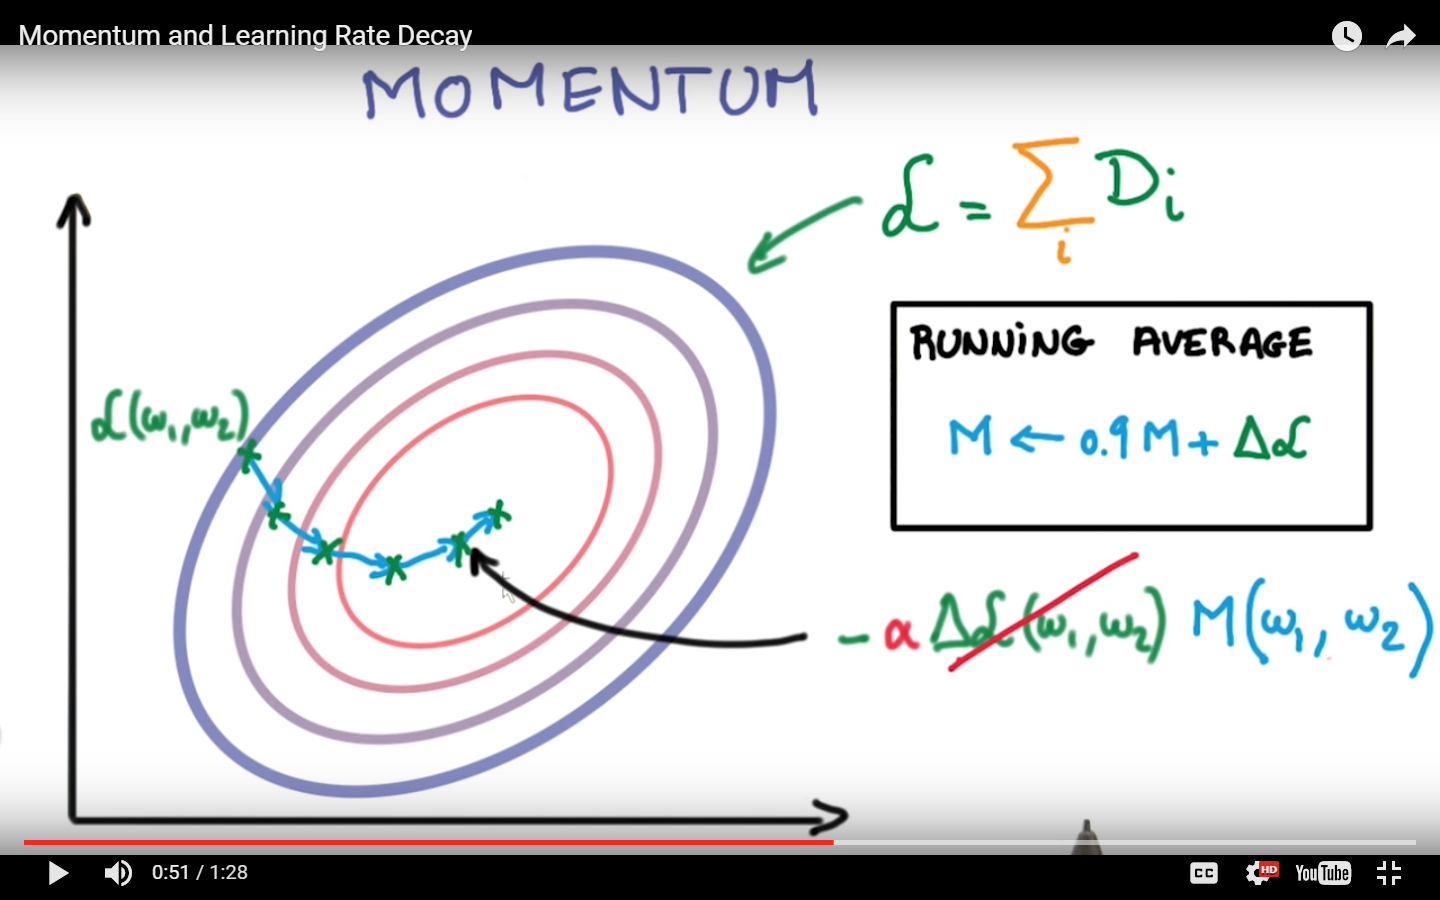 Momentum and Learning Rate Decay
MOMENTUM
ℒ = ∑ᵢ Dᵢ
RUNNING AVERAGE
M ← 0.9 M + Δℒ
ℒ(ω₁, ω₂)
- α Δℒ(ω₁, ω₂) M(ω₁, ω₂)
0:51 / 1:28
CC
HD
YouTube